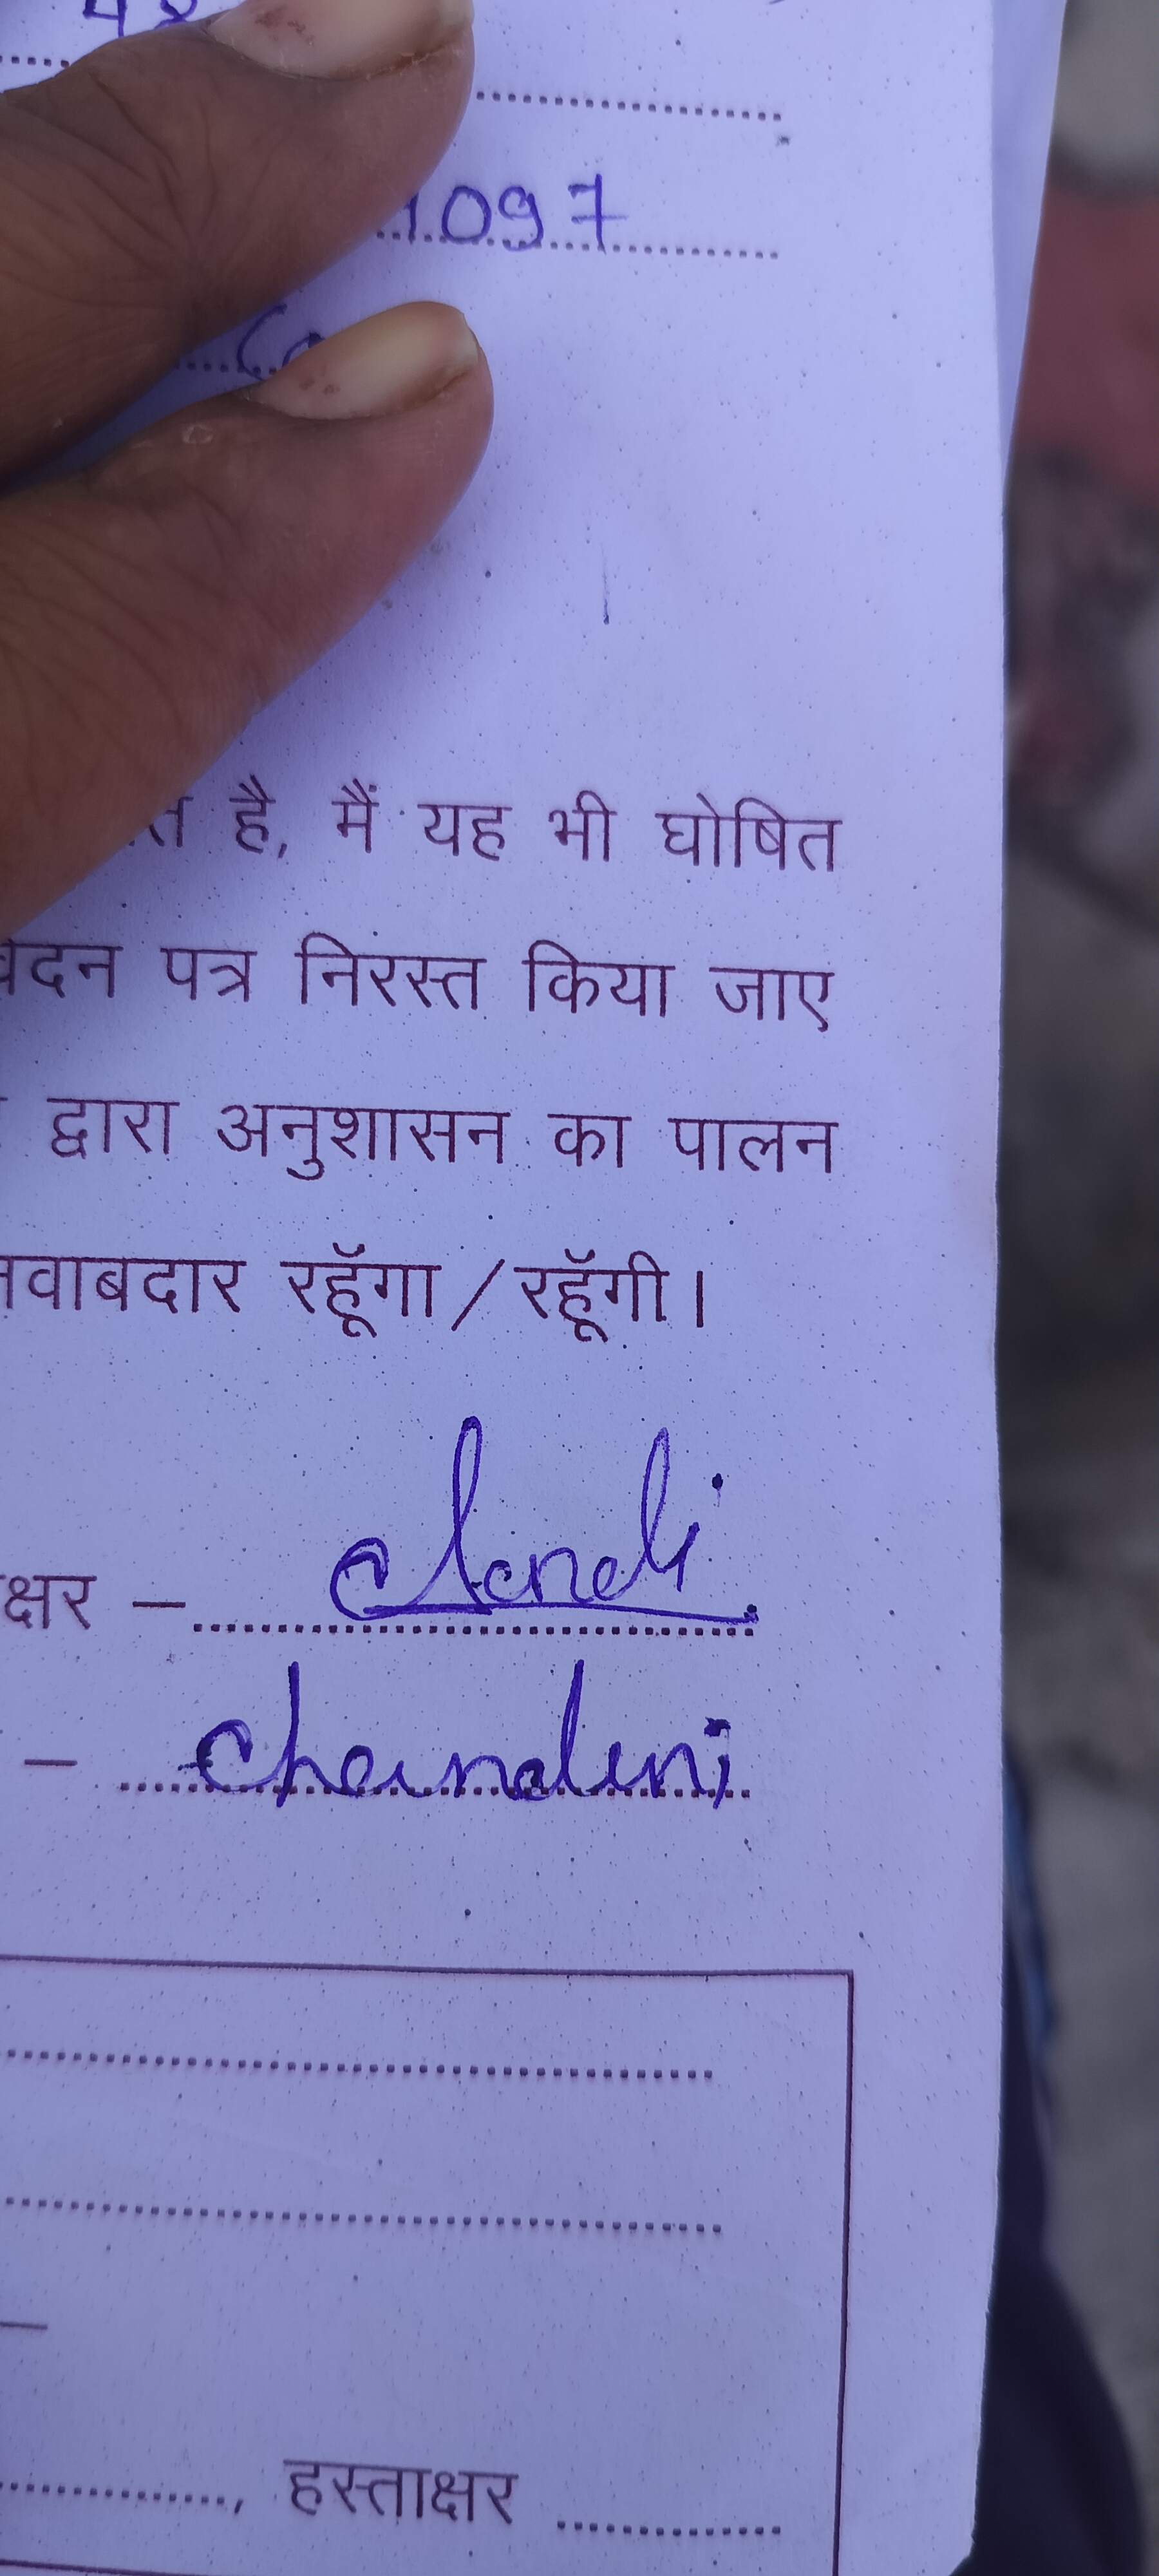 1097
है, मैं यह भी घोषित
पत्र निरस्त किया जाए
द्वारा अनुशासन का पालन
रहूँगा / रहूँगी।
क्षर –
– chandini
–
, हस्ताक्षर